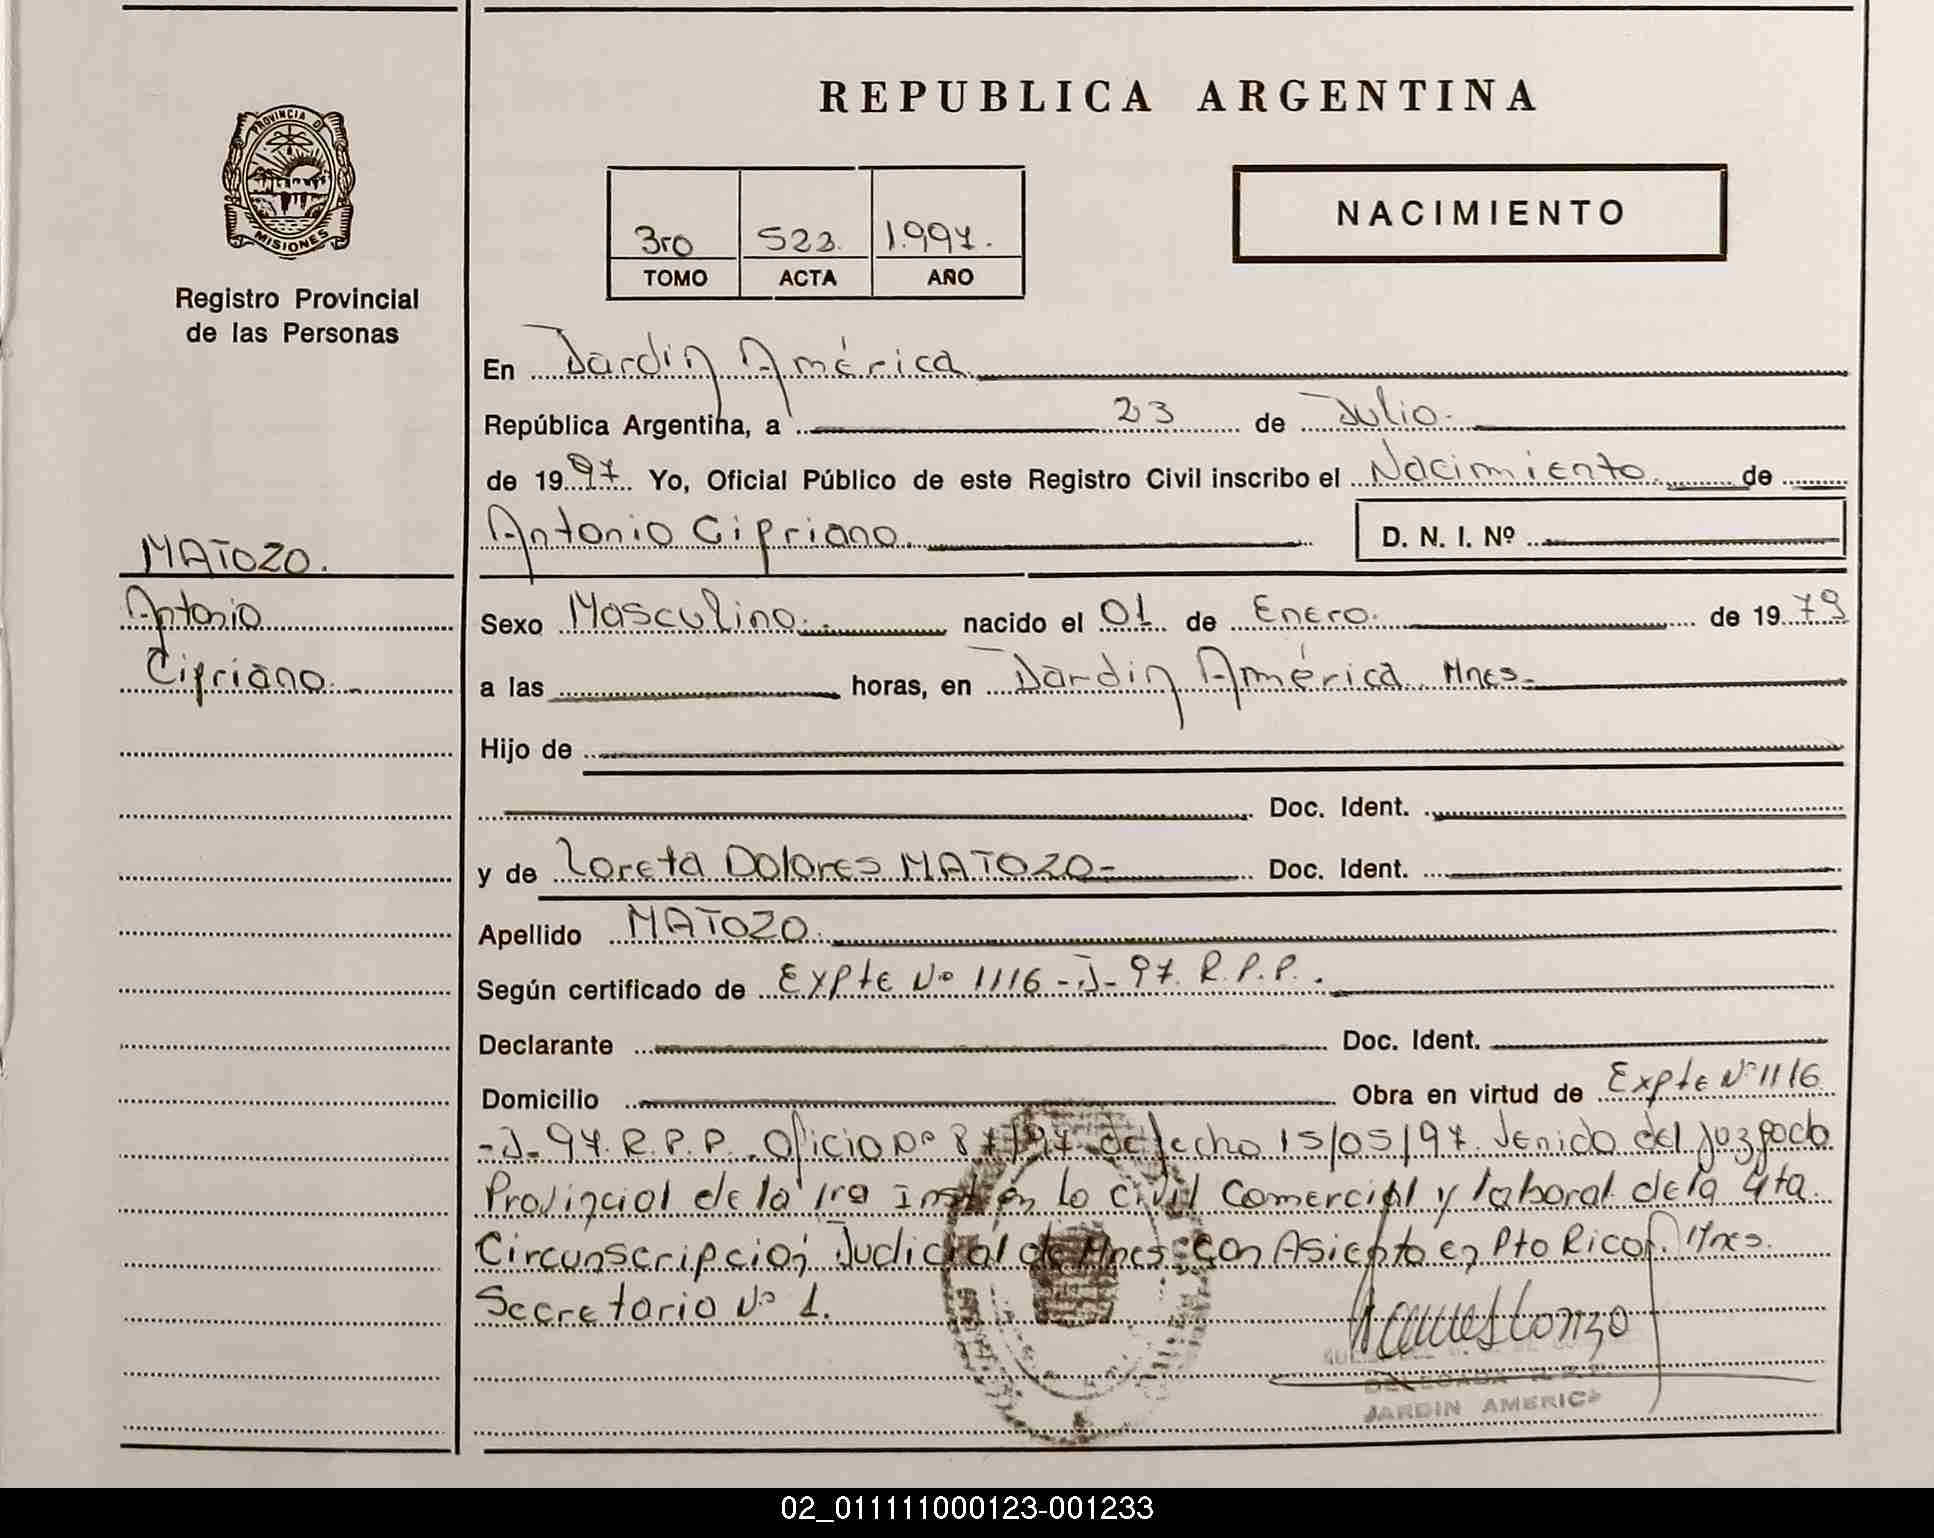 REPUBLICA ARGENTINA
PROVINCIA DE
MISIONES
Registro Provincial
de las Personas
3ro 523. 1.997.
TOMO ACTA AÑO
NACIMIENTO
En Jardin América.
República Argentina, a 23 de Julio.
de 1997. Yo, Oficial Público de este Registro Civil inscribo el Nacimiento de
Antonio Cipriano. D. N. I. Nº
MATOZO.
Antonio
Cipriano.
Sexo Masculino. nacido el 01 de Enero. de 1979
a las horas, en Jardin América Mnes.
Hijo de
Doc. Ident.
y de Loreta Dolores MATOZO- Doc. Ident.
Apellido MATOZO.
Según certificado de Expte Nº 1116-J-97. R.P.P.
Declarante Doc. Ident.
Domicilio Obra en virtud de Expte Nº 1116
-J-97. R.P.P. Oficio nº 87/97 de fecho 15/05/97. Venido del juzgado
Provincial de la 1ra Inst en lo civil Comercial y laboral de la 4ta
Circunscripción Judicial de Mnes con Asiento en Pto Rico. Mnes.
Secretario Nº 1.
DELEGADA R.P.P.
JARDIN AMERICA
02_011111000123-001233